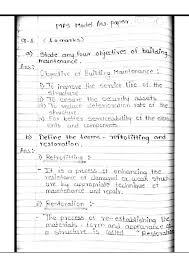 PAPS Model Ans. paper
Q-1 (6 marks)
a) State any four objectives of building
maintenance.
Ans:
Objective of Building Maintenance :
i) To improve the service life of the
structure
ii) To ensure the security assets
iii) To reduce deterioration rate of the
structure.
iv) For better serviceability of the
ents and component.
b) Define the terms - retrofitting and
restoration.
Ans:
i) Retrofitting :-
- It is a process of enhancing the
resistance of damaged or weak structure
are by appropriate technique of
maintenance and repair.
ii) Restoration :-
- The process of re-establishing the
materials, form and appearance of
a structure is called - Restoration